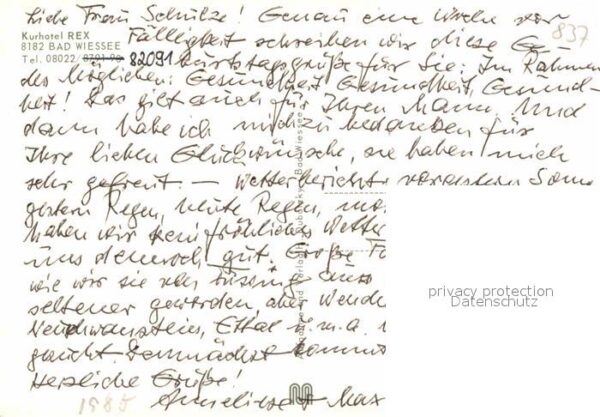 Liebe Frau Schulze! Genau eine Woche vor
837
Kurhotel REX
8182 BAD WIESSEE
Tel. 08022/8791-98 82091
Fälligkeit schreiben wir diese Ge-
burtstagsgrüße für Sie: Im Rahmen
des Möglichen: Gesundheit Gesundheit, Gesund-
heit! Das gilt auch für Ihren Mann. Und
dann habe ich mich zu bedanken für
Ihre lieben Glückwünsche, sie haben mich
sehr gefreut — Wetterbericht
gestern Regen, heute Regen,
haben wir kein fröhliches Wetter
uns dennoch gut. Große
wie wir sie von
seltener geworden, aber
Neuschwanstein, Ettal u.m.a.
Demnächst
Herzliche Grüße!
Anneliese + Max
1985
privacy protection
Datenschutz